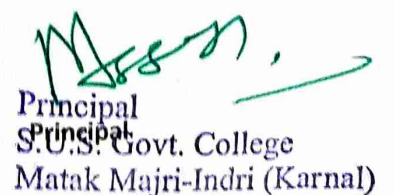 Principal
Principal
S.U.S. Govt. College
Matak Majri-Indri (Karnal)